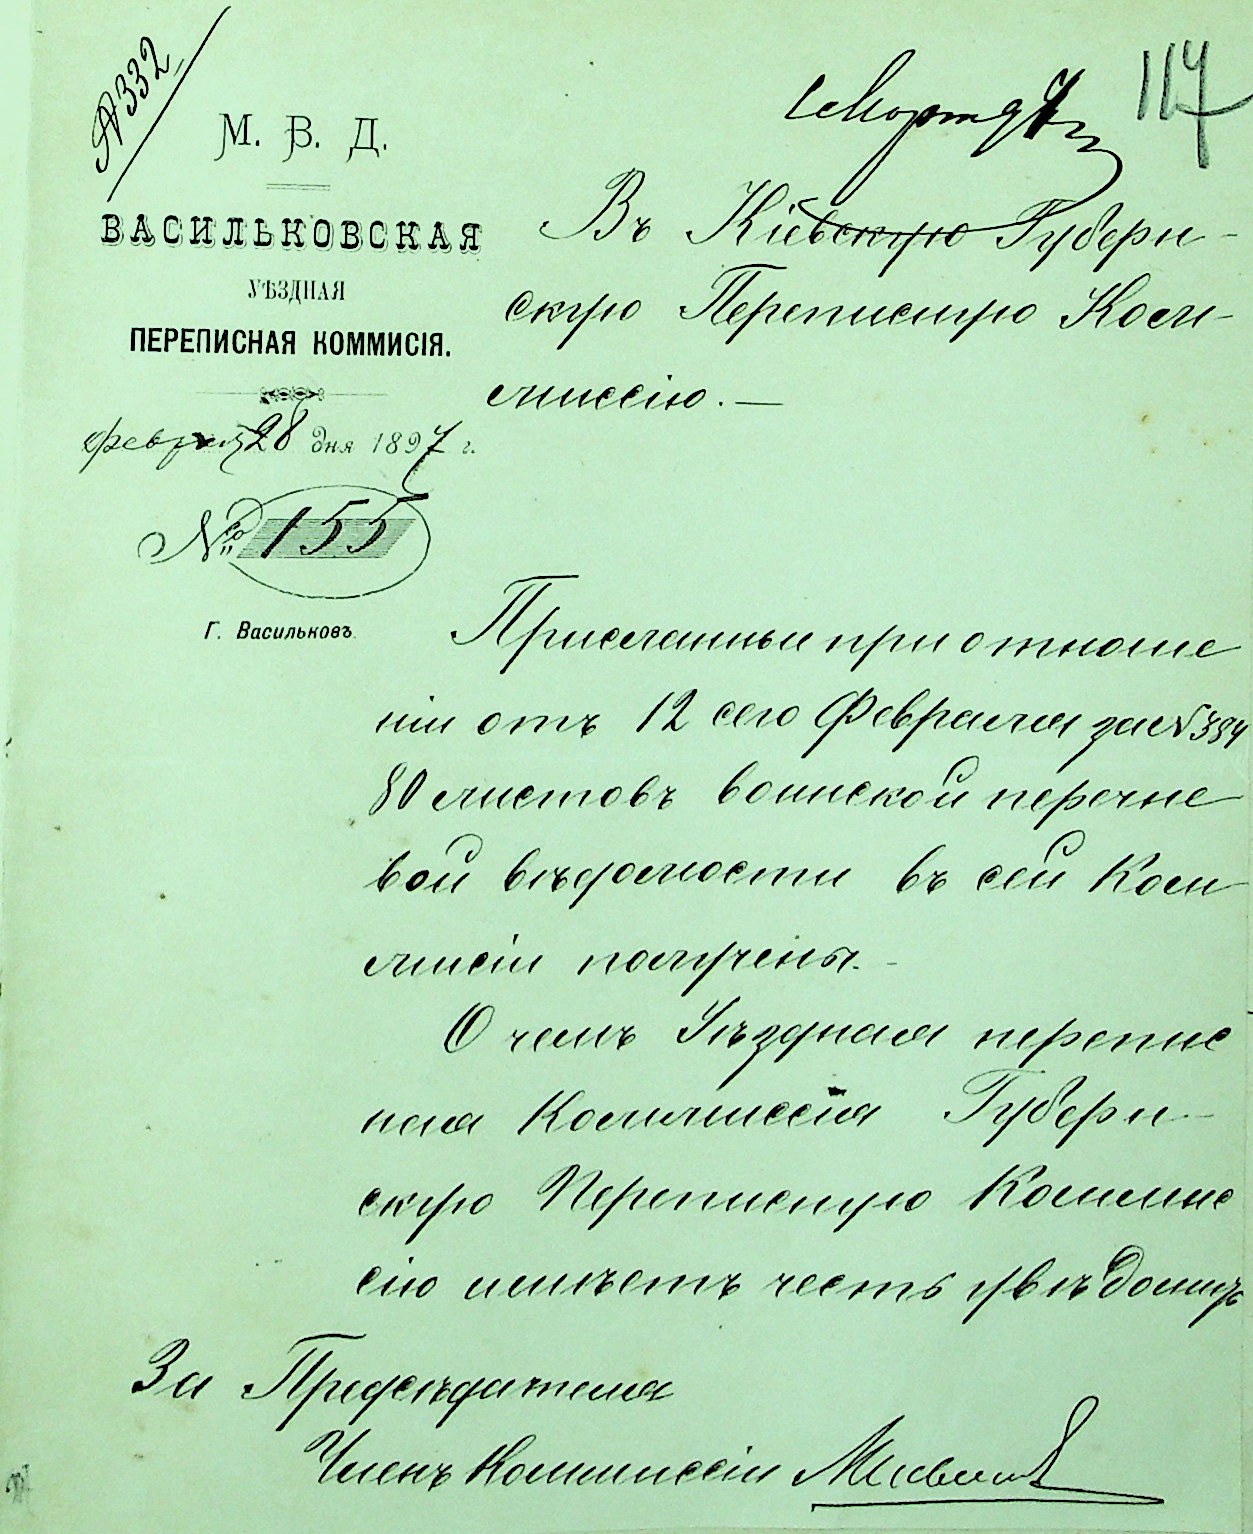 №332
117
М. В. Д.
ВАСИЛЬКОВСКАЯ
УѢЗДНАЯ
ПЕРЕПИСНАЯ КОММИСІЯ.
Февраля 28 дня 1897 г.
№ 155
Г. Васильковъ
Въ Кіевскую Губерн-
скую Переписную Ком-
миссію.—
Присланныи при отноше
ніи отъ 12 сего Февраля за № 384
80 листовъ воинской перечне
вой вѣдомости въ сей Ком
мисіи получены.-
О чемъ Уѣздная перепис
ная Коммиссія Губерн-
скую Переписную Коммис
сію имѣетъ честь увѣдомить
За Предсѣдателя
Членъ Коммиссіи